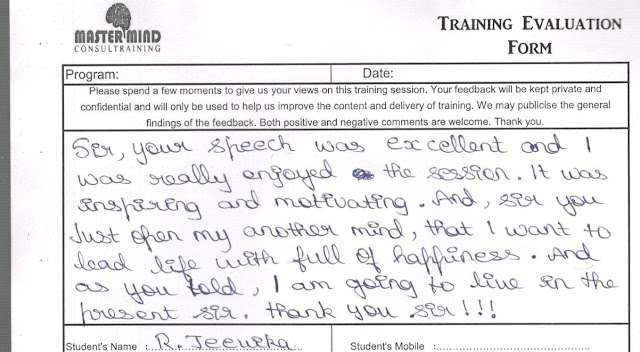 MASTER MIND
CONSULTRAINING
TRAINING EVALUATION
FORM
Program:
Date:
Please spend a few moments to give us your views on this training session. Your feedback will be kept private and
confidential and will only be used to help us improve the content and delivery of training. We may publicise the general
findings of the feedback. Both positive and negative comments are welcome. Thank you.
Sir, your speech was excellent and I
was really enjoyed the session. It was
inspiring and motivating. And, sir you
Just open my another mind, that I want to
lead life with full of happiness. And
as you told, I am going to live in the
present sir. thank you sir!!!
Student's Name : R. Jeevika
Student's Mobile :